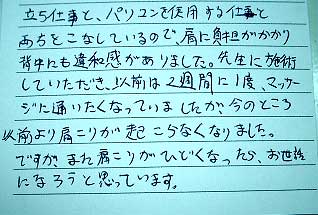 立ち仕事と、パソコンを使用する仕事と
両方をこなしているので、肩に負担がかかり
背中にも違和感がありました。先生に施術
していただき、以前は2週間に1度、マッサー
ジに通いたくなっていましたが、今のところ
以前より肩こりが起こらなくなりました。
ですが、また肩こりがひどくなったら、お世話
になろうと思っています。